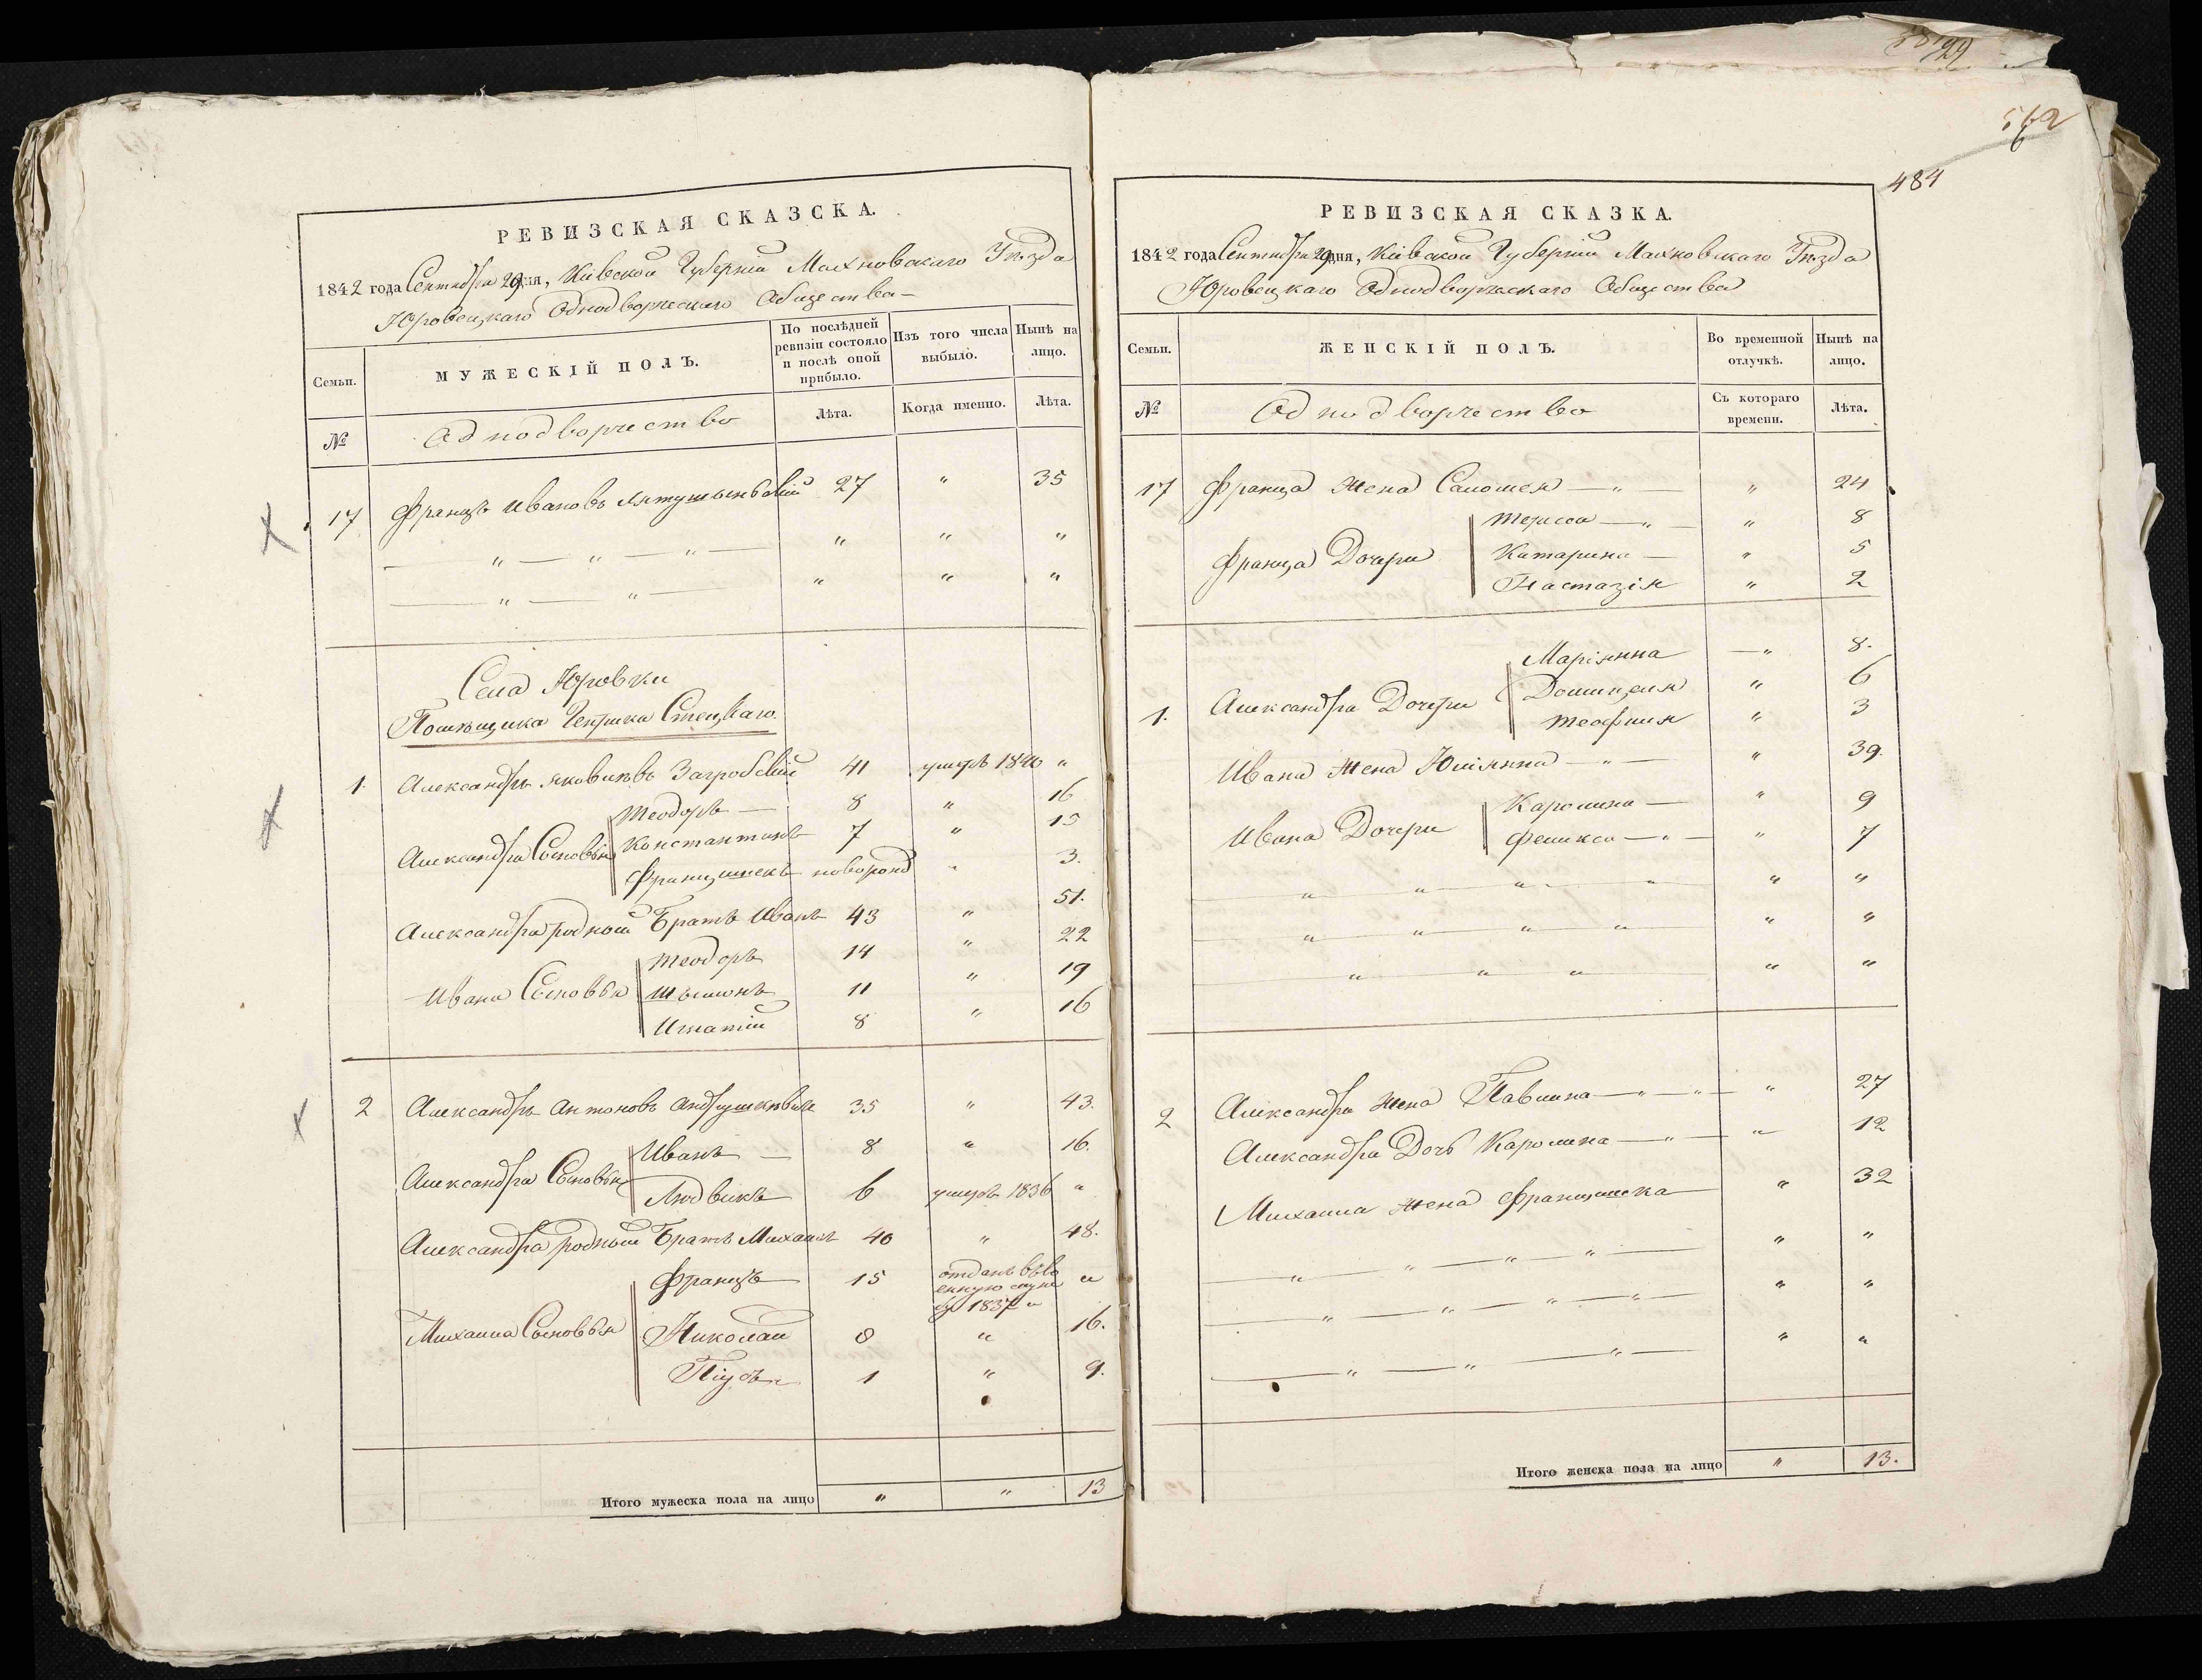 РЕВИЗСКАЯ СКАЗСКА.
1842 года Сентября 29 дня, Кіевской Губерніи Махновскаго Уѣзда
Юровецкаго Однодворческаго Общества
Семьи.
МУЖЕСКІЙ ПОЛЪ.
По послѣдней ревизіи состояло и послѣ оной прибыло.
Изъ того числа выбыло.
Нынѣ на лицо.
№
Однодворчество
Лѣта.
Когда именно.
Лѣта.
17 Францъ Ивановъ 27 " 35
" " " " " "
" " " " "
Села Юровки
Помѣщика Генрика Стецкаго.
1. Александръ Яковлевъ Загробскій 41 умеръ 1840 "
Теодоръ 8 " 16
Александра Сыновья Константинъ 7 " 15
Францишекъ новорожд " 3.
Александра родный Братъ Иванъ 43 " 51.
Теодоръ 14 " 22
Ивана Сыновья Шымонъ 11 " 19
Игнатій 8 " 16
2 Александръ Антоновъ Андрушкевичъ 35 " 43.
Иванъ 8 " 16.
Александра Сыновья Людвикъ 6 умеръ 1836 "
Александра родный Братъ Михаилъ 40 " 48.
Францъ 15 отданъ въ во
енную служ
бу 1837 "
Михаила Сыновья Николай 8 " 16.
Піусъ 1 " 9.
Итого мужеска пола на лицо " " 13
562
484
РЕВИЗСКАЯ СКАЗКА.
1842 года Сентября 29 дня, Кіевской Губерніи Махновскаго Уѣзда
Юровецкаго Однодворческаго Общества
Семьи.
ЖЕНСКІЙ ПОЛЪ.
Во временной отлучкѣ.
Нынѣ на лицо.
№
Однодворчество
Съ котораго времени.
Лѣта.
17 Франца Жена Саломея " " 24
Тереса " " 8
Франца Дочери Катарина " 5
Настазія " 2
Маріянна " 8.
1. Александра Дочери Домицеля " 6
Теофиля " 3
Ивана Жена Юліянна " " 39.
Каролина " 9
Ивана Дочери Феликса " " 7
" " " " " "
" " " " " "
" " " " "
2 Александра Жена Павлина " " " 27
Александра Дочь Каролина " " 12
Михаила Жена Францишка " 32
" " " " "
" " " " " "
" " " " "
Итого женска пола на лицо " 13.